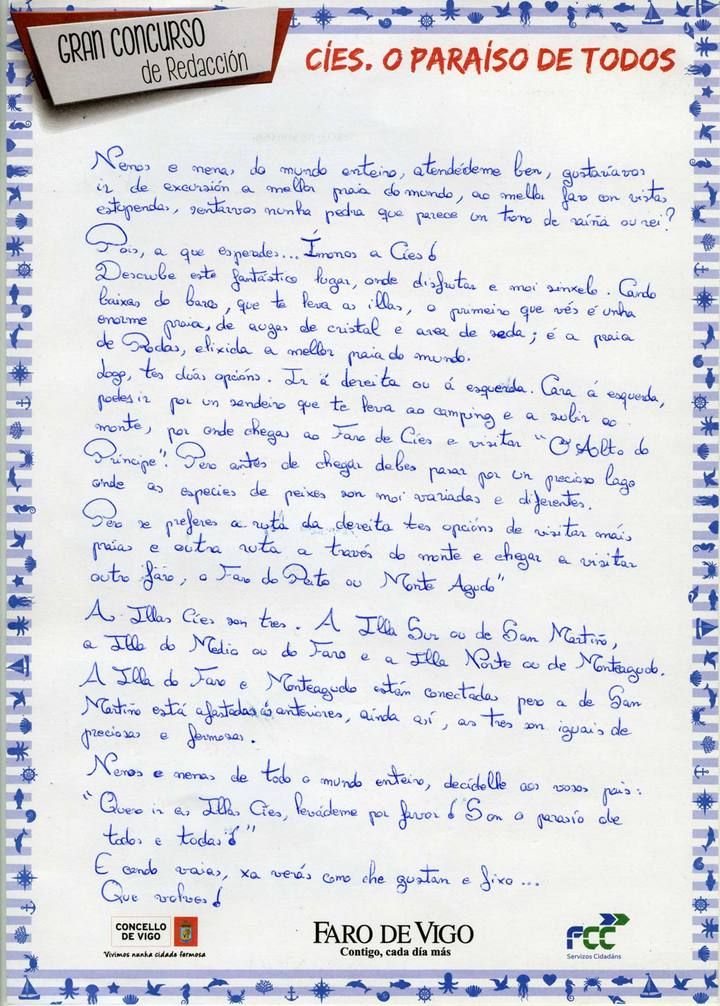 GRAN CONCURSO
de Redacción
CÍES. O PARAÍSO DE TODOS
Nenos e nenas do mundo enteiro, atendédeme ben, gustaríavos
ir de excursión a mellor praia do mundo, ao mellor faro con vistas
estupendas, sentarvos nunha pedra que parece un trono de raíña ou rei?
Pois, a que esperades... Ímonos a Cíes!
Describe este fantástico lugar, onde disfrutar e moi sinxelo. Cando
baixas do barco, que te leva as illas, o primeiro que vés é unha
enorme praia, de augas de cristal e area de seda; é a praia
de Rodas, elixida a mellor praia do mundo.
Logo, tes dúas opcións. Ir á dereita ou á esquerda. Cara á esquerda,
podes ir por un sendeiro que te leva ao camping e a subir ao
monte, por onde chegas ao Faro de Cíes e visitar "O Alto do
Príncipe". Pero antes de chegar debes pasar por un precioso lago
onde as especies de peixes son moi variadas e diferentes.
Pero se preferes a ruta da dereita tes opcións de visitar máis
praias e outra ruta a través do monte e chegar a visitar
outro faro, o Faro do Peito ou Monte Agudo"
As Illas Cíes son tres. A Illa Sur ou de San Martiño,
a Illa do Medio ou do Faro e a Illa Norte ou de Monteagudo.
A Illa do Faro e Monteagudo están conectadas pero a de San
Martiño está afastada ás anteriores, aínda así, as tres son iguais de
preciosas e fermosas.
Nenos e nenas de todo o mundo enteiro, decídelle aos vosos pais:
"Quero ir as Illas Cíes, levádeme por favor! Son o parasío de
todos e todas!"
E cando vaias, xa verás como che gustan e fixo...
Que volves!
CONCELLO
DE VIGO
Vivimos nunha cidade fermosa
FARO DE VIGO
Contigo, cada día más
FCC
Servizos Cidadáns